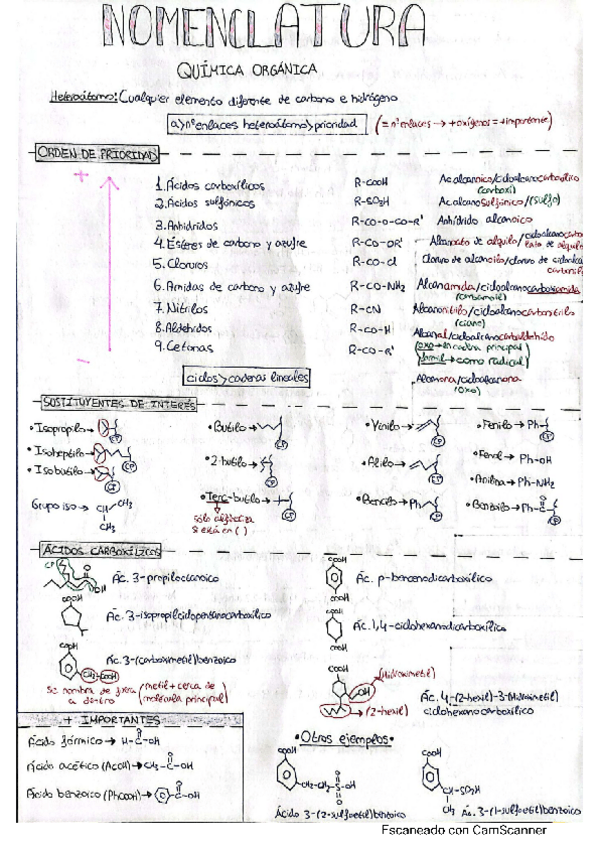 NOMENCLATURA
QUÍMICA ORGÁNICA
Heteroátomo: Cualquier elemento diferente de carbono e hidrógeno
a > nº enlaces heteroátomo > prioridad (= nº enlaces → + oxígenos = + importante)
ORDEN DE PRIORIDAD
+
1. Ácidos carboxílicos R-COOH Ac alcanoico/cicloalcanocarboxílico
(carboxi)
2. Ácidos sulfónicos R-SO3H Ac alcanosulfónico/(sulfo)
3. Anhidridos R-CO-O-CO-R' Anhídrido alcanoico
4. Ésteres de carbono y azufre R-CO-OR' Alcanoato de alquilo/
5. Cloruros R-CO-Cl Cloruro de alcanoilo/cloruro de
6. Amidas de carbono y azufre R-CO-NH2 Alcanamida/cicloalcanocarboxamida
(carbamoil)
7. Nitrilos R-CN Alcanonitrilo/cicloalcanocarbonitrilo
(ciano)
8. Aldehidos R-CO-H Alcanal/cicloalcanocarbaldehído
(oxo → en cadena principal)
(formil → como radical)
9. Cetonas R-CO-R' Alcanona/cicloalcanona
(oxo)
-
ciclos > cadenas lineales
SUSTITUYENTES DE INTERÉS
• Isopropilo →
• Isoheptilo →
• Isobutilo →
Grupo iso → CH CH3
CH3
• Butilo →
• 2-butilo →
• Terc-butilo →
sólo alfabetiza
si está en ( )
• Vinilo →
• Alilo →
• Bencilo → Ph
• Fenilo → Ph
• Fenol → Ph-OH
• Anilina → Ph-NH2
• Benzoilo → Ph-C
O
ÁCIDOS CARBOXÍLICOS
CP O OH
Ác. 3-propiloctanoico
COOH
Ác. 3-isopropilciclopentanocarboxílico
COOH
CH2-COOH
Ác. 3-(carboximetil)benzoico
Se nombra de fuera a dentro / metil + cerca de molécula principal
COOH
COOH
Ác. p-bencenodicarboxílico
COOH
COOH
Ác. 1,4-ciclohexanodicarboxílico
COOH
OH
(hidroximetil)
(2-hexil)
Ác. 4-(2-hexil)-3-(hidroximetil)
ciclohexanocarboxílico
+ IMPORTANTES
Ácido fórmico → H-C-OH
O
Ácido acético (AcOH) → CH3-C-OH
O
Ácido benzoico (PhCOOH) → C-OH
O
• Otros ejemplos •
COOH
CH2-CH2-S-OH
O
O
Ácido 3-(2-sulfoetil)benzoico
COOH
CH-SO3H
CH3
Ác. 3-(1-sulfoetil)benzoico
Escaneado con CamScanner